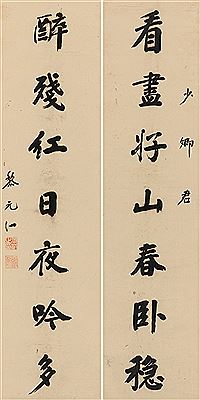 看盡好山春臥穩
少卿君
醉殘紅日夜吟多
黎元